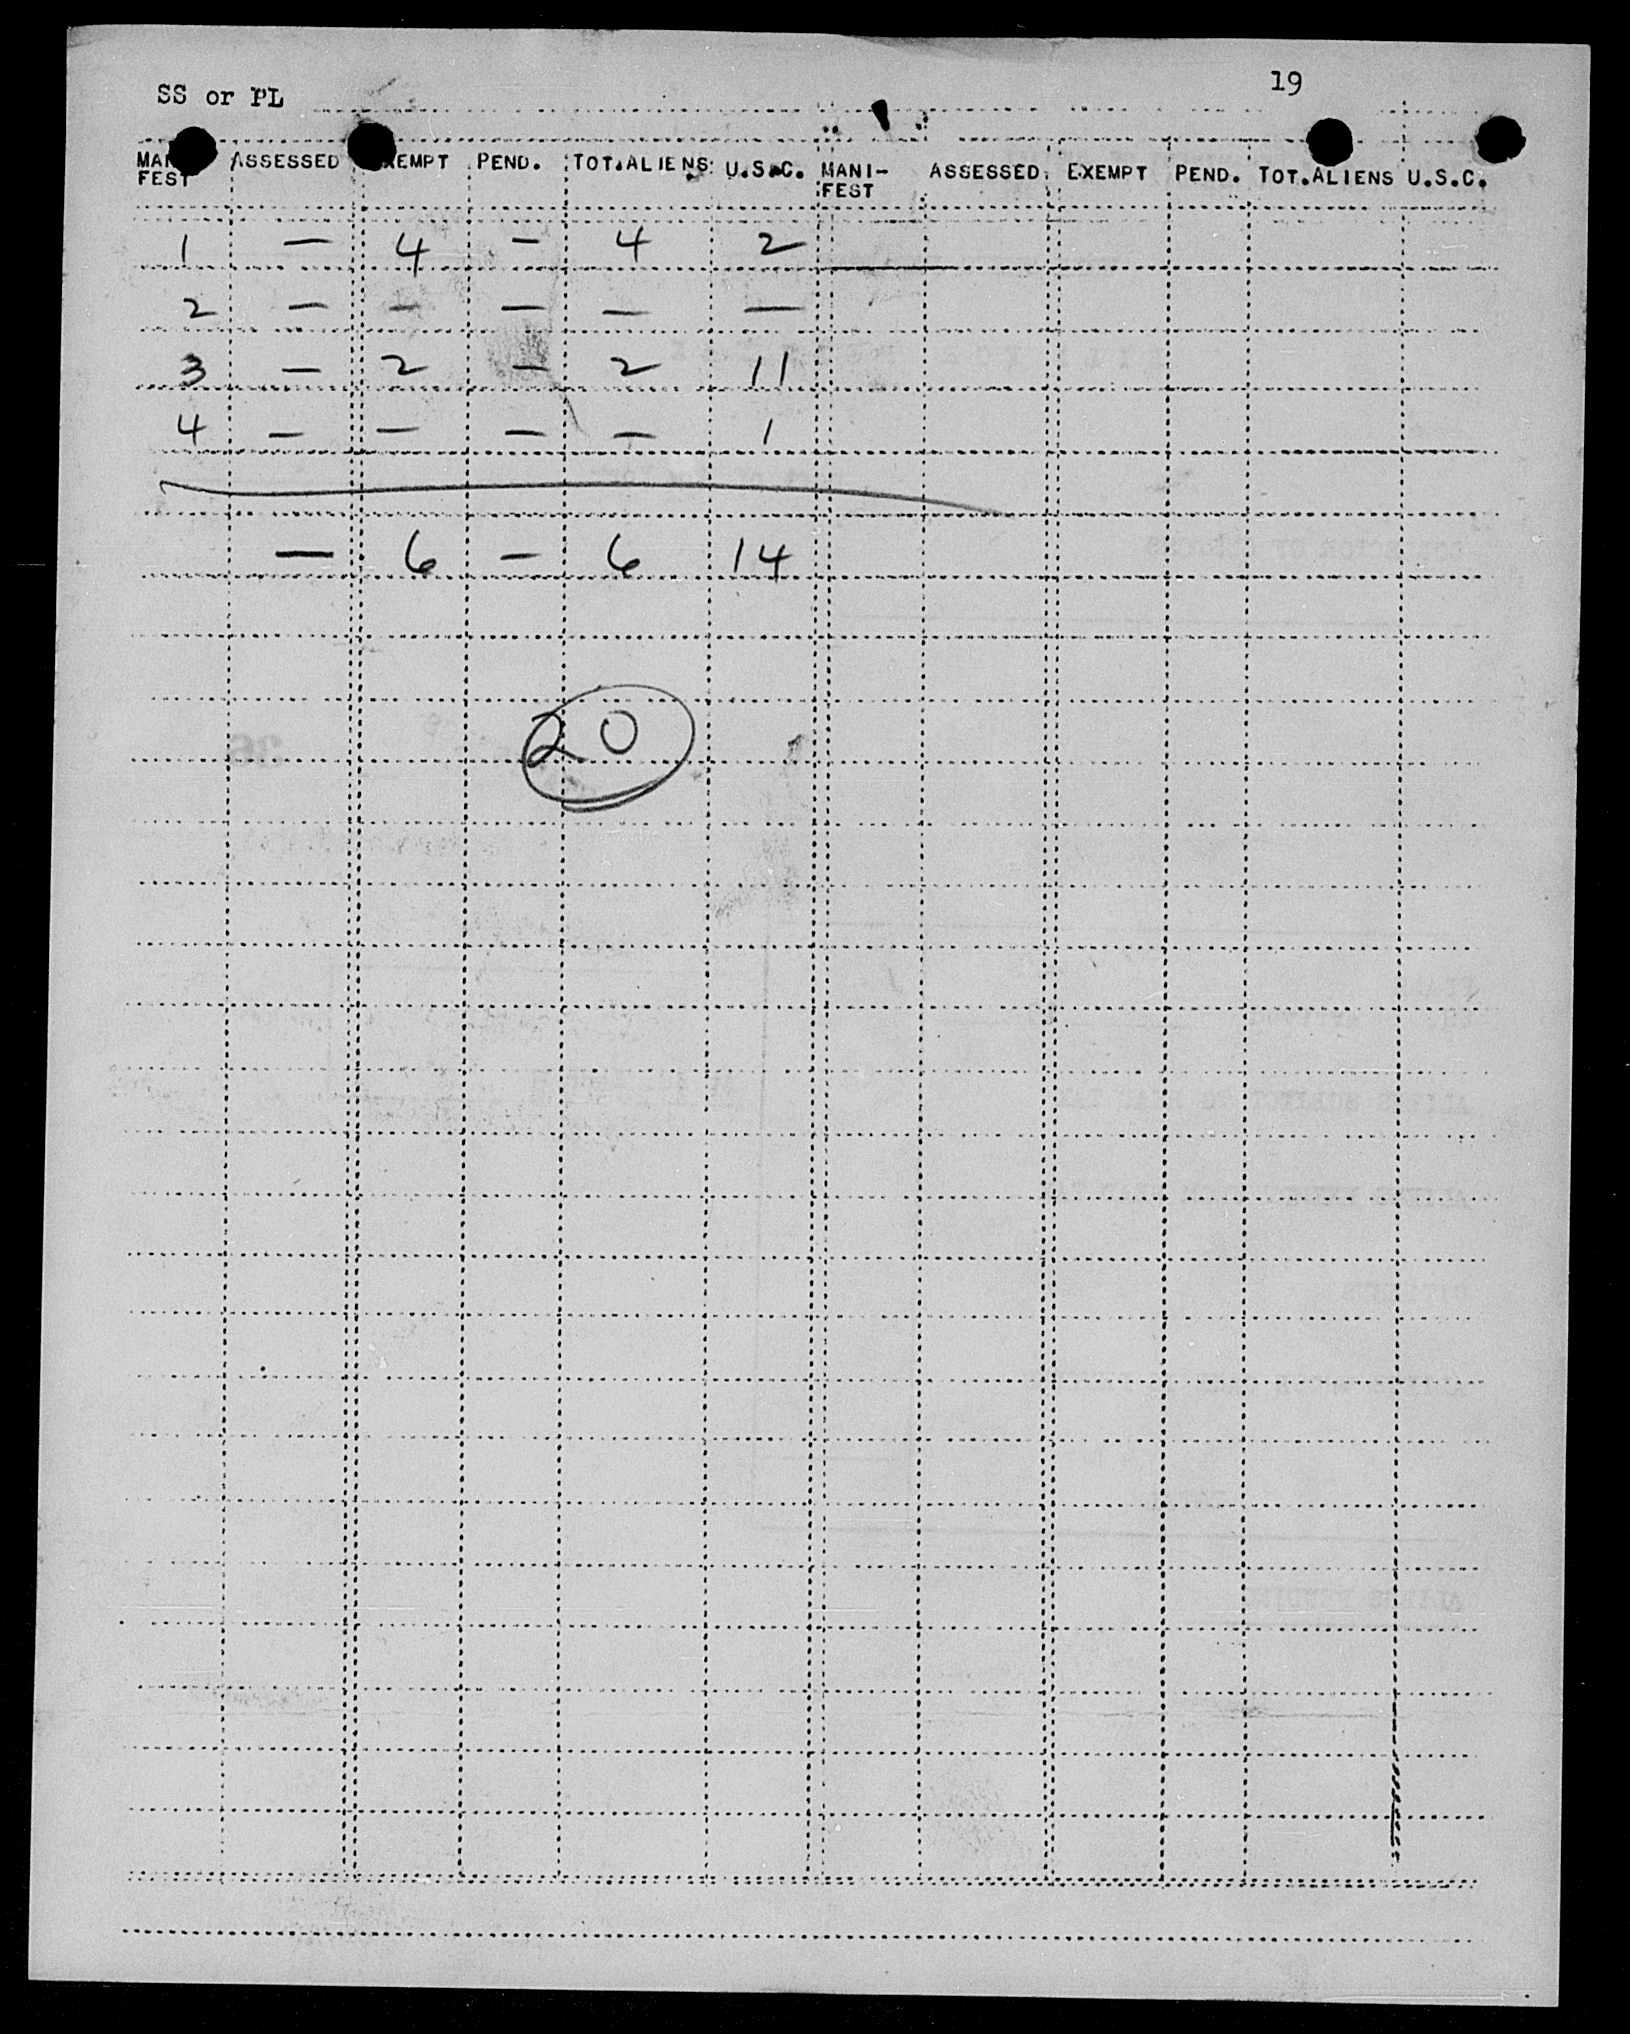 SS or PL 19
MANI- ASSESSED EXEMPT PEND. TOT.ALIENS U.S.C. MANI- ASSESSED EXEMPT PEND. TOT.ALIENS U.S.C.
FEST FEST
1 — 4 — 4 2
2 — — — — —
3 — 2 — 2 11
4 — — — — 1
— 6 — 6 14
20